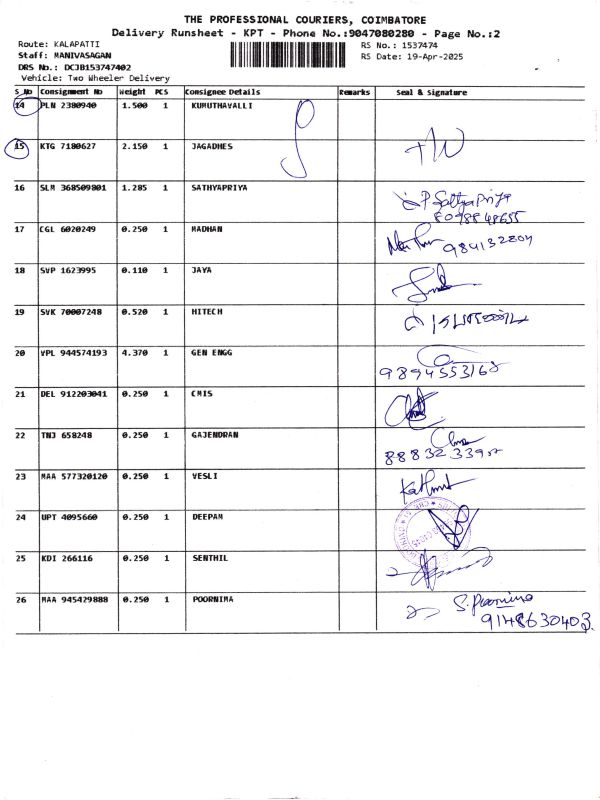 THE PROFESSIONAL COURIERS, COIMBATORE
Delivery Runsheet - KPT - Phone No.:9047080280 - Page No.:2
Route: KALAPATTI
RS No.: 1537474
Staff: MANIVASAGAN
RS Date: 19-Apr-2025
DRS No.: DCJB153747402
Vehicle: Two Wheeler Delivery
S_No Consignment No Weight PCS Consignee Details Remarks Seal & Signature
14 PLN 2380940 1.500 1 KUMUTHAVALLI
15 KTG 7180627 2.150 1 JAGADHES
16 SLM 368509801 1.285 1 SATHYAPRIYA P Sathya Priya
8098848655
17 CGL 6020249 0.250 1 MADHAN 984132804
18 SVP 1623995 0.110 1 JAYA
19 SVK 70007248 0.520 1 HITECH
20 VPL 944574193 4.370 1 GEN ENGG
9894553168
21 DEL 912203041 0.250 1 CMIS
22 TNJ 658248 0.250 1 GAJENDRAN
23 MAA 577320120 0.250 1 VESLI
24 UPT 4095660 0.250 1 DEEPAM
25 KDI 266116 0.250 1 SENTHIL
26 MAA 945429888 0.250 1 POORNIMA S. Poornima
9148630403